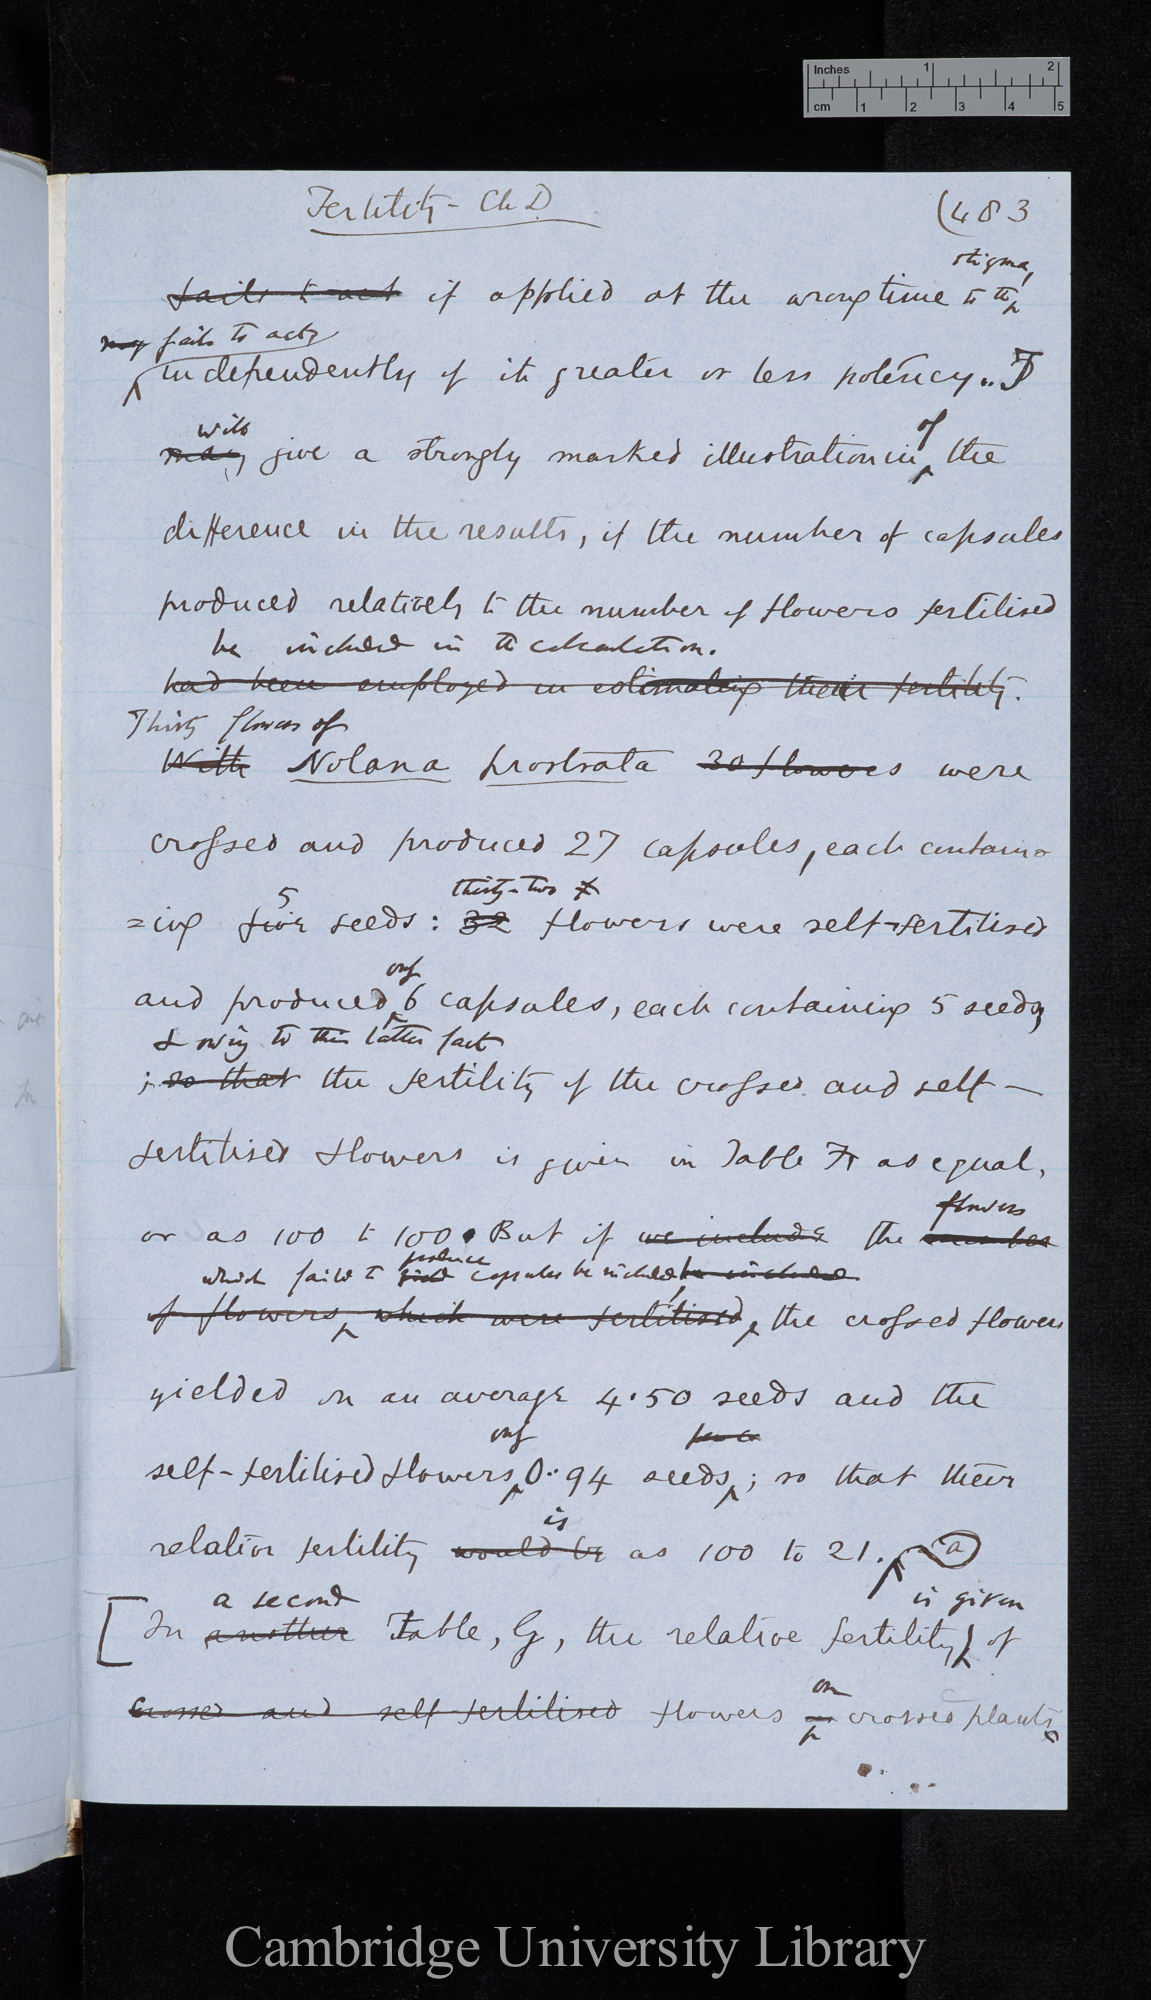 Inches 1 2
cm 1 2 3 4 5
Fertility - Ch D
(483
stigma,
fails to act if applied at the wrong time to the
may fails to act,
independently of its greater or less potency. I
will
may give a strongly marked illustration in of the
difference in the results, if the number of capsules
produced relatively to the number of flowers fertilised
be included in the calculation.
had been employed in estimating their fertility.
Thirty flowers of
With Nolana prostrata 30 flowers were
crossed and produced 27 capsules, each contain-
5 thirty-two
=ing five seeds: 32 flowers were self-fertilised
only
and produced 6 capsules, each containing 5 seeds
& owing to this latter fact
; so that the fertility of the crossed and self-
fertilised flowers is given in Table F as equal,
flowers
or as 100 to 100. But if we include the number
which failed to yield produce capsules be included, be included
of flowers, which were fertilised, the crossed flowers
yielded on an average 4.50 seeds and the
only
self-fertilised flowers 0.94 seeds; so that their
is
relative fertility would be as 100 to 21. (a)
a second is given
[In another Table, G, the relative fertility of
on
crossed and self-fertilised flowers crossed plants
Cambridge University Library